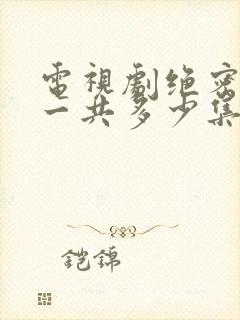 電視劇绝密
一共多少集
铠錦